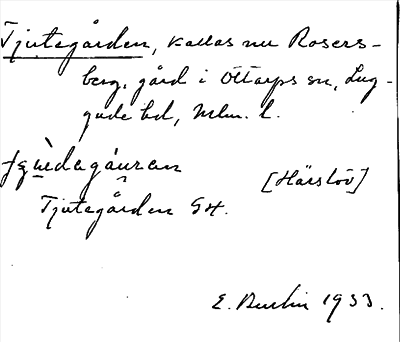 Tjutegården, kallas nu Rosers-
berg, gård i Ottarps sn, Lug-
gude hd, Mlm. l.
[Härslöv]
Tjutegården GH.
E. Burlin 1933.